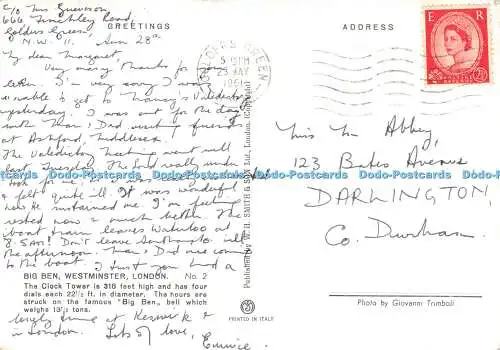 c/o Mrs
666 Finchley Road,
Golders Green,
N.W. 11. Sun 28th
GREETINGS
My dear Margaret,
Very many thanks for your
letter. I'm very sorry I was
unable to get to Nancy's Valedictory
yesterday. I was out for the day
with Mum, Dad visiting friends
at Ashford, Middlesex.
The Valedictory Meeting went well
on Tuesday. The Lord really under-
took for me, I
& felt quite ill. It was wonderful
how He sustained me. I'm feeling
rested now & much better. The
boat train leaves Waterloo at
8.5AM! Don't leave Southampton till
the afternoon. Mum, Dad are coming
to the boat. I trust you had a
BIG BEN, WESTMINSTER, LONDON. No. 2
The Clock Tower is 316 feet high and has four
dials each 22½ ft. in diameter. The hours are
struck on the famous "Big Ben,, bell which
weighs 13½ tons.
lovely time at Keswick &
in London. Lots of love,
Eunice
Published by W. H. SMITH & SON Ltd., London. (Copyright)
PRINTED IN ITALY
ADDRESS
GOLDERS GREEN
5 15PM
29 MAY
1961
E R
POSTAGE REVENUE
2½D
Miss M Abbey,
123 Bates Avenue
DARLINGTON
Co. Durham
Photo by Giovanni Trimboli
Dodo-Postcards Dodo-Postcards Dodo-Postcards Dodo-Postcards